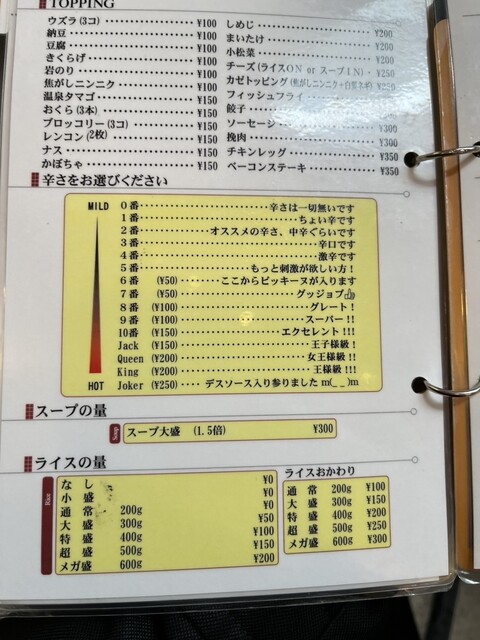 TOPPING
ウズラ(3コ) ¥100
納豆 ¥100
豆腐 ¥100
きくらげ ¥100
岩のり ¥100
焦がしニンニク ¥100
温泉タマゴ ¥150
おくら(3本) ¥150
ブロッコリー(3コ) ¥150
レンコン(2枚) ¥150
ナス ¥150
かぼちゃ ¥150
しめじ ¥200
まいたけ ¥200
小松菜
チーズ(ライスON or スープIN) ¥250
カゼトッピング(焦がしニンニク+白髪ネギ) ¥250
フィッシュフライ
餃子
ソーセージ ¥300
挽肉 ¥300
チキンレッグ ¥350
ベーコンステーキ ¥350
辛さをお選びください
MILD
0番 辛さは一切無いです
1番 ちょい辛です
2番 オススメの辛さ、中辛ぐらいです
3番 辛口です
4番 激辛です
5番 もっと刺激が欲しい方!
6番 (¥50) ここからピッキーヌが入ります
7番 (¥50) グッジョブ
8番 (¥100) グレート!
9番 (¥100) スーパー!!
10番 (¥150) エクセレント!!!
Jack (¥150) 王子様級!
Queen (¥200) 女王様級!!
King (¥200) 王様級!!!
HOT Joker (¥250) デスソース入り参りました m(_ _)m
スープの量
Soup スープ大盛 (1.5倍) ¥300
ライスの量
Rice
なし ¥0
小盛 ¥0
通常 200g ¥0
大盛 300g ¥50
特盛 400g ¥100
超盛 500g ¥150
メガ盛 600g ¥200
ライスおかわり
通常 200g ¥100
大盛 300g ¥150
特盛 400g ¥200
超盛 500g ¥250
メガ盛 600g ¥300